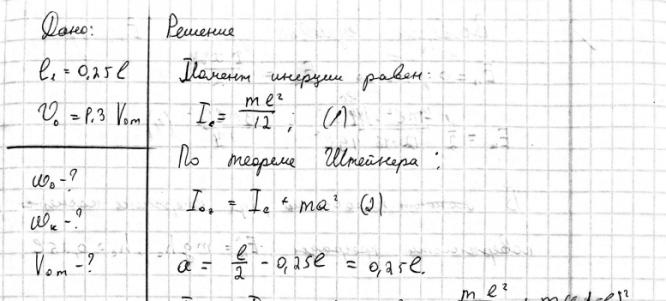 Дано:
l₁ = 0,25l
V₀ = 1.3 V₀m
ω₀ - ?
ωк - ?
V₀m - ?
Решение
Момент инерции равен:
Iс = ml²/12; (1)
По теореме Штейнера:
I₀₂ = Iс + ma² (2)
a = l/2 - 0,25l = 0,25l.